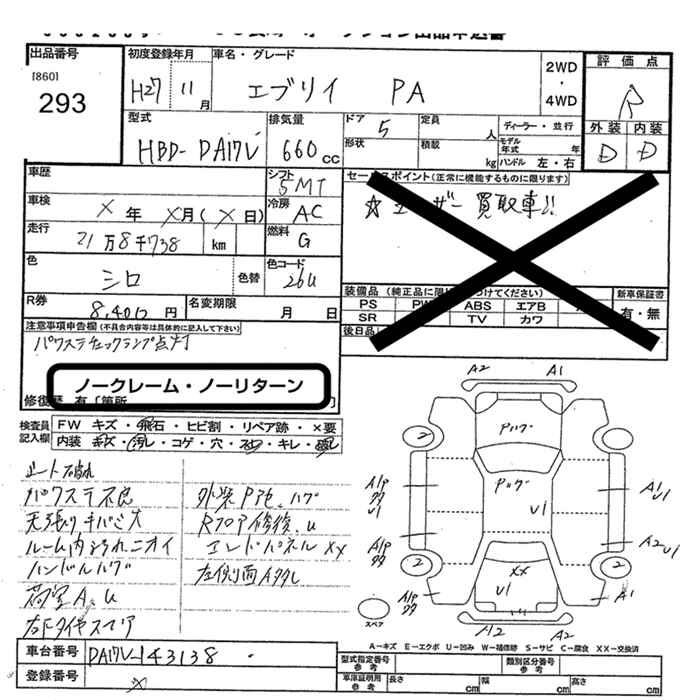 出品番号
[860]
293
初度登録年月
H27 11月
車名・グレード
エブリイ PA
2WD
・
4WD
評価点
R
外装 内装
D D
型式
HBD-DA17V
排気量
660 cc
ドア
5
形状
定員 人
積載 kg
ディーラー・並行
モデル年式 年
ハンドル 左・右
車歴
シフト
5MT
車検
× 年 ×月(×日)
冷房
AC
走行
21万8千738 km
燃料
G
色
シロ
色替
色コード
26U
R券
円
名変期限
月 日
セールスポイント(正常に機能するものに限ります)
☆ユーザー買取車!!
装備品
PS
ABS エアB
SR TV カワ
新車保証書
有・無
後日品
注意事項申告欄(不具合内容等は具体的に記入して下さい)
パワステチェックランプ点灯
ノークレーム・ノーリターン
修復歴 有 [箇所
検査員記入欄
FW キズ・飛石・ヒビ割・リペア跡・×要
内装
シート破れ
パワステ不良
天張りキバミ大
ルーム内汚れニオイ
ハンドルハゲ
荷室A、U
右Fタイヤスマア
Rフロア修復、U
エンドパネルXX
A2 A1
Pハゲ
Pハゲ
U1
A1P
U1
A1
U1
A1P
A2U1
XX
U1
A1P
A1
A2 A2
2
2
2
2
スペア
A-キズ E-エクボ U-凹み W-補修跡 S-サビ C-腐食 XX-交換済
車台番号
DA17V-143138
登録番号
×
型式指定番号
参考
類別区分番号
参考
車庫証明用
参考
長さ cm
幅 cm
高さ cm